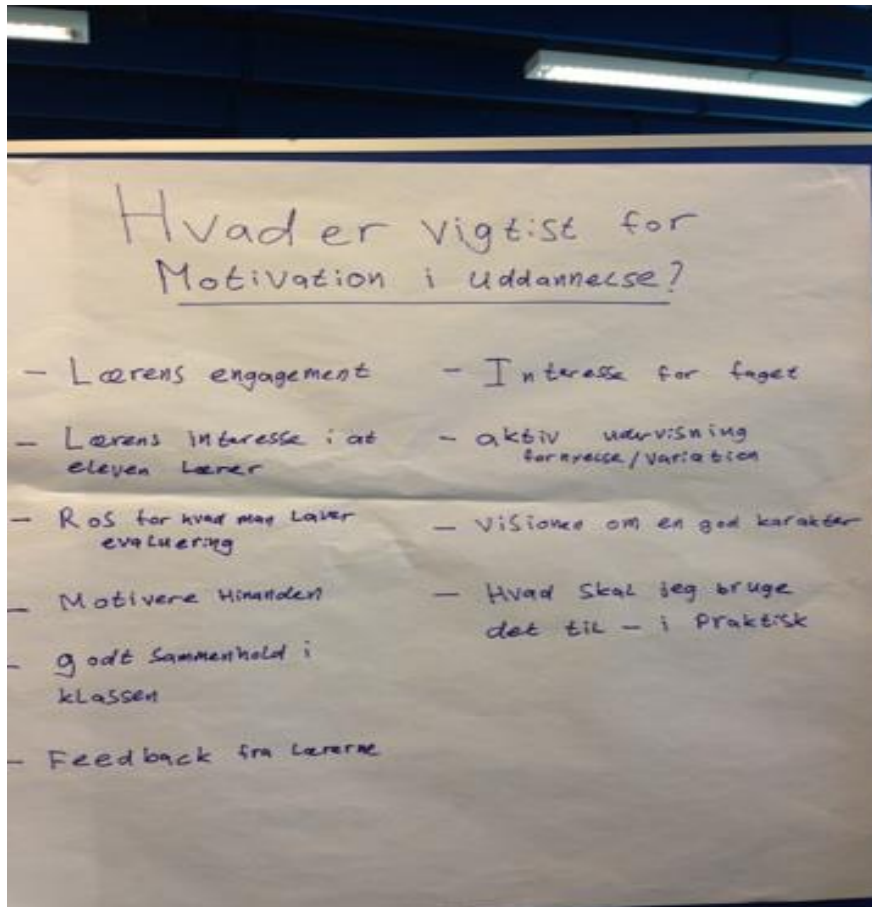 Hvad er vigtist for
Motivation i uddannelse?
- Lærens engagement
- Lærens interesse i at
eleven Lærer
- Ros for hvad man Laver
evaluering
- Motivere Hinanden
- godt Sammenhold i
kLassen
- Feedback fra Lærerne
- Interesse for faget
- aktiv udervisning
fornyelse/variation
- Visionen om en god karakter
- Hvad Skal jeg bruge
det til - i Praktisk